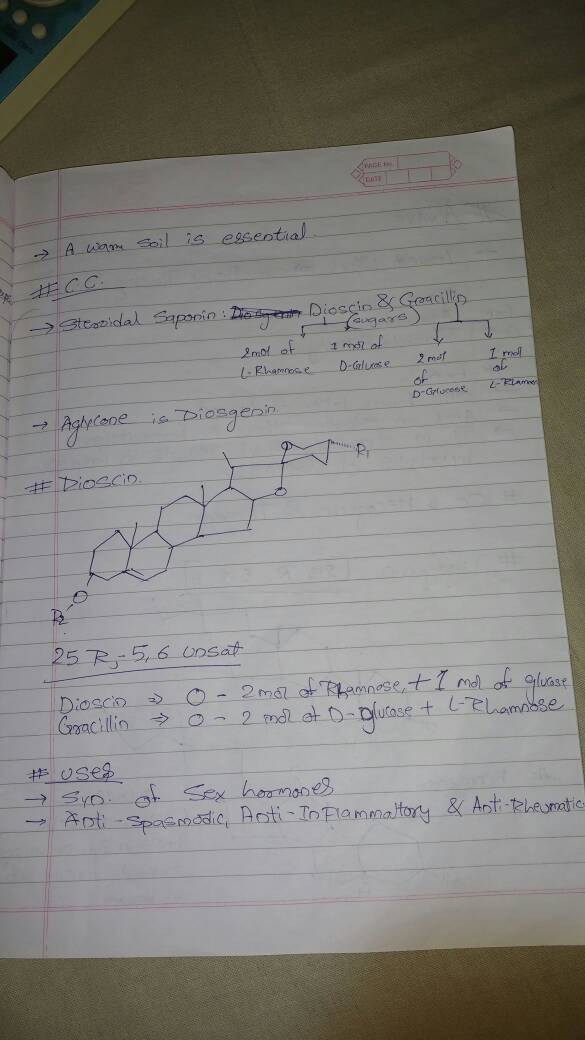 PAGE No.
DATE
→ A warm soil is essential
# C.C.
→ Steroidal Saponin: Diosgenin Dioscin & Gracillin
(sugars)
2mol of L-Rhamnose
1 mol of D-Glucose
2 mol of D-Glucose
1 mol of L-Rhamnose
→ Aglycone is Diosgenin.
# Dioscin.
O
R1
O
O
R2
25 R, - 5,6 unsat
Dioscin ⇒ O - 2mol of Rhamnose, + 1 mol of glucose
Gracillin ⇒ O - 2 mol of D-glucose + L-Rhamnose
# Uses
→ Syn. of Sex hormones
→ Anti-Spasmodic, Anti-Inflammatory & Anti-Rheumatic